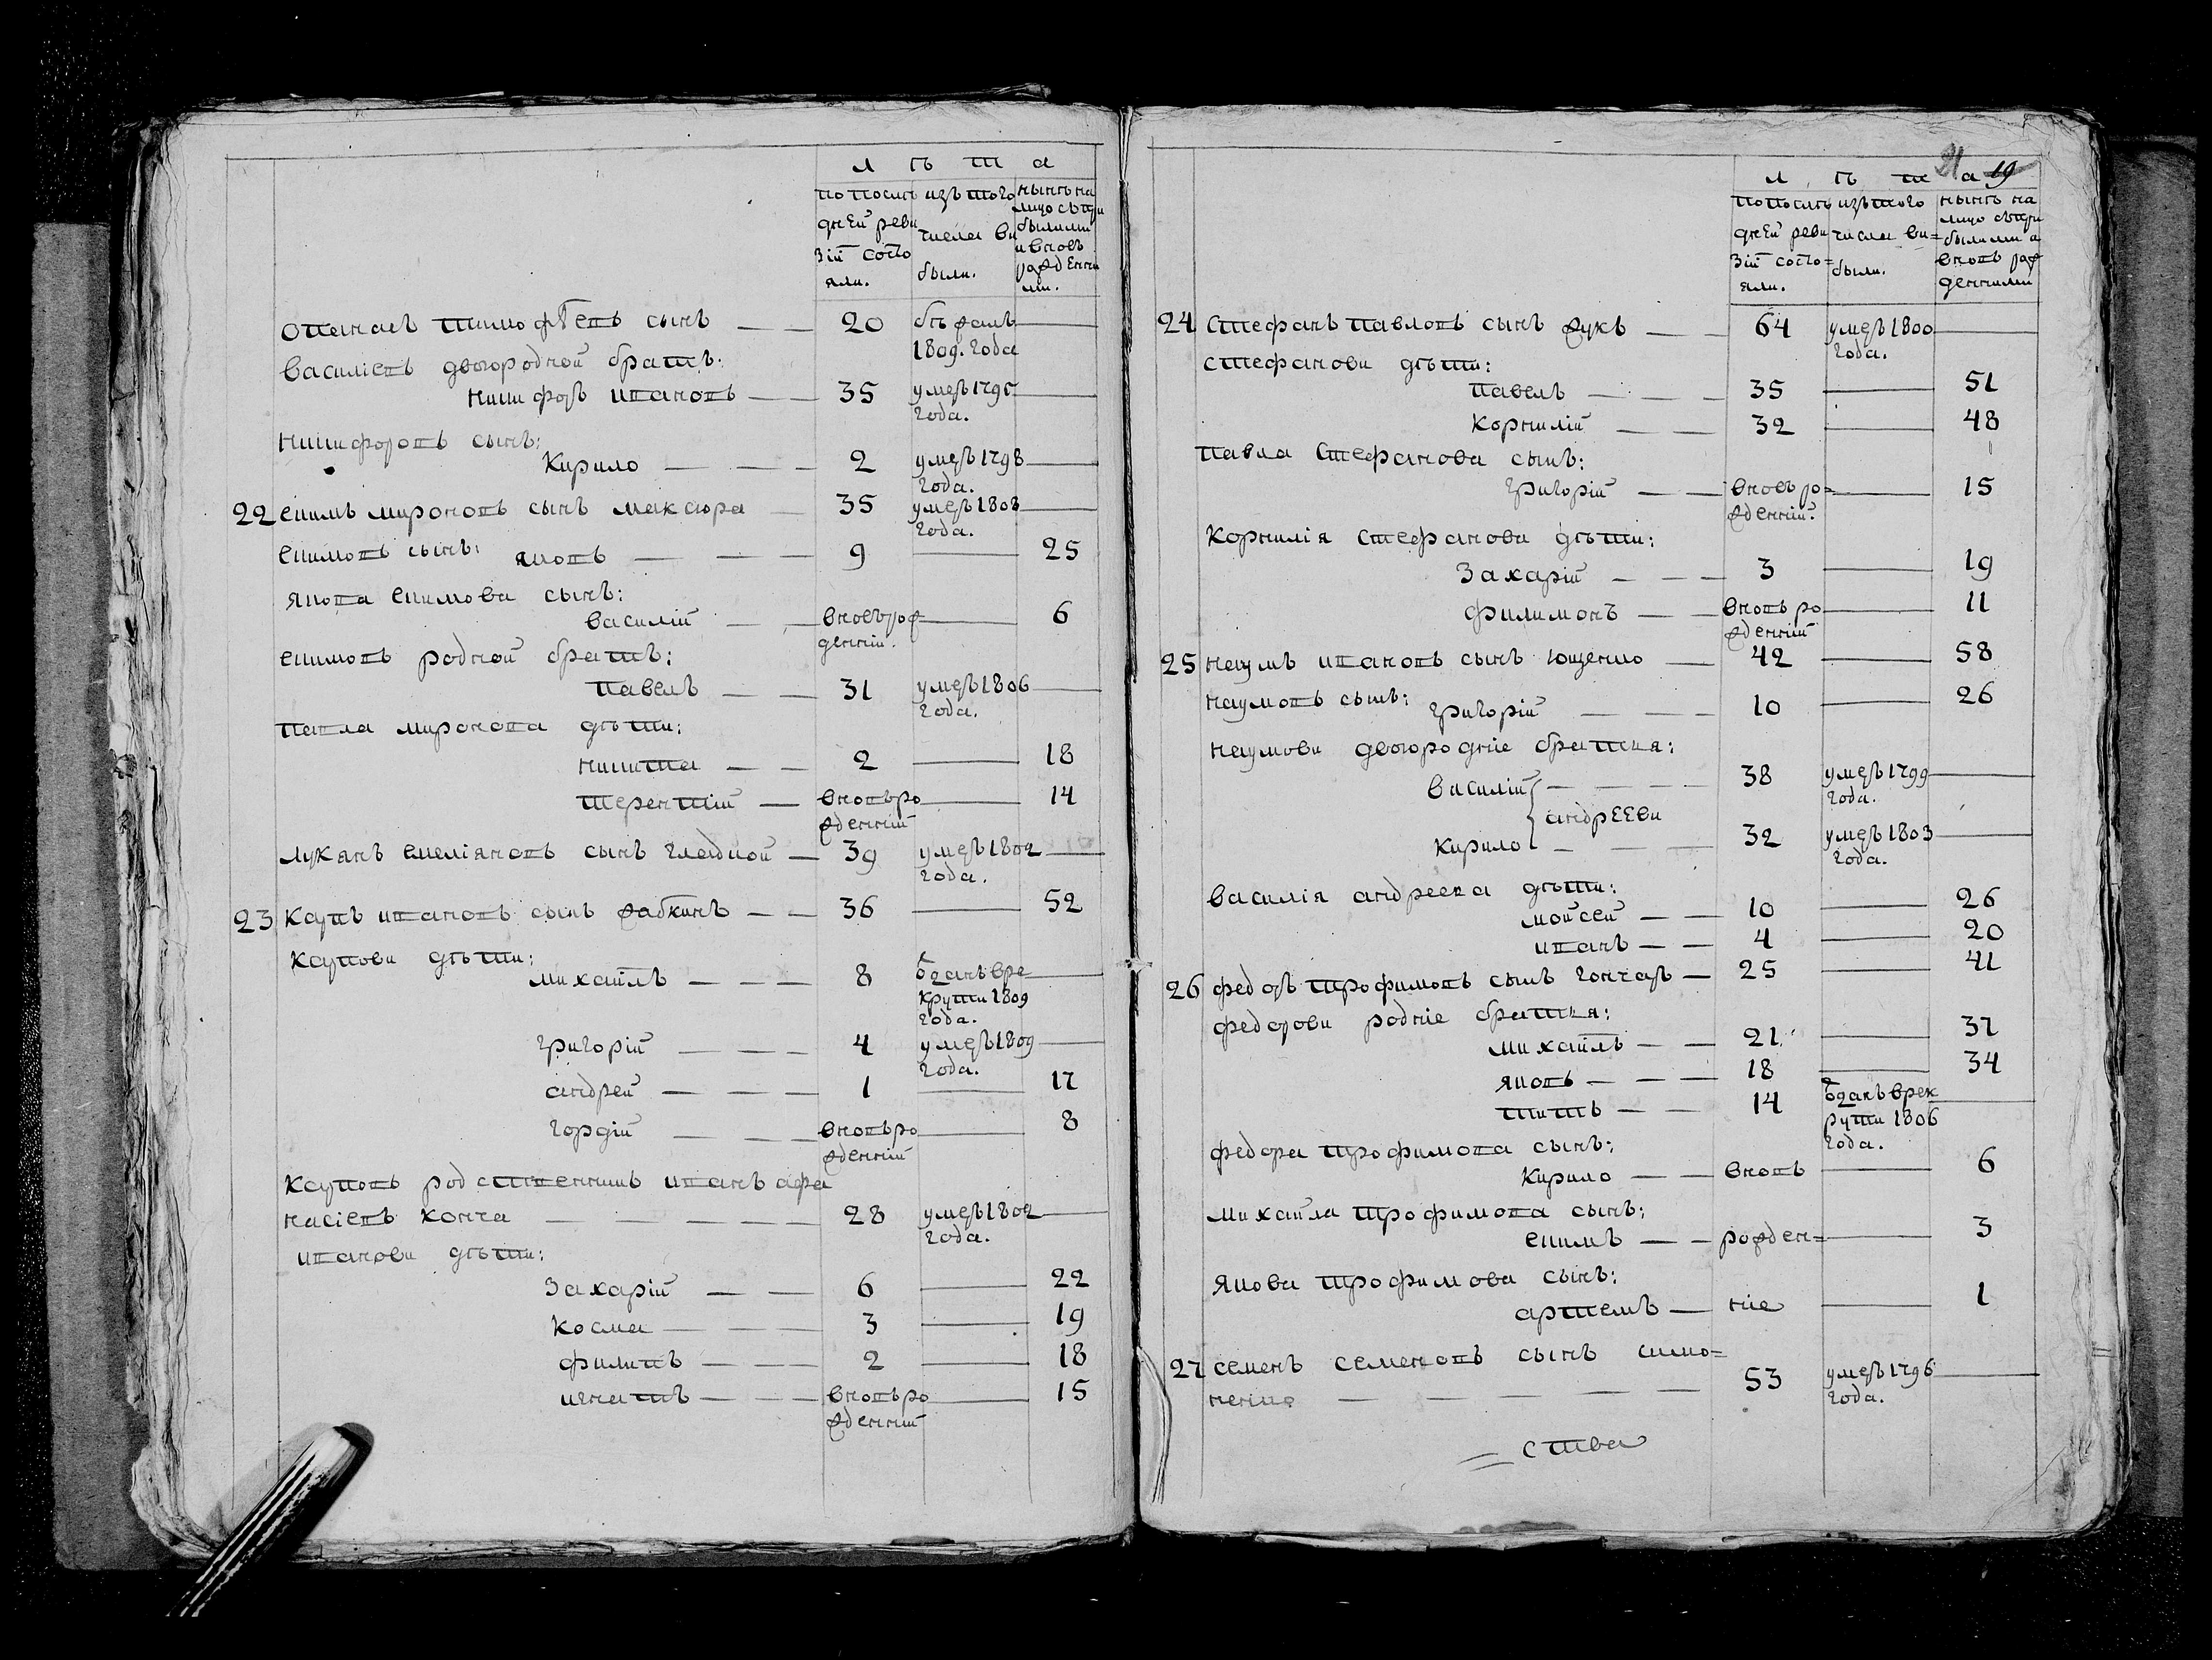 Л ѣ т а
По послѣ
дней реви
зіи состо
яли.
изъ того
числа вы
были.
нынѣ на
лицо съ при
былыми
и вновь
рожденны
ми.
Опанасъ Тимофѣевъ сынъ — — 20 бѣжалъ
1809. года
Василіевъ двоюродной братъ:
Никифоръ Ивановъ — — 35 умеръ 1795
года.
Никифоровъ сынъ:
Кирило — — — 2 умеръ 1798
года.
22 Екимъ Мироновъ сынъ — 35 умеръ 1808
года.
Екимовъ сынъ: Яковъ — — — 9 — 25
Якова Екимова сынъ:
Василій — — вновь рож — 6
денній.
Екимовъ родной братъ:
Павелъ — — 31 умеръ 1806
года.
Павла Миронова дѣти:
Никита — — 2 — 18
Терентій — вновь ро — 14
жденній
Лукянъ Емеліяновъ сынъ Гледкой — 39 умеръ 1802
года.
23 Карпъ Ивановъ сынъ Жабкинъ — — 36 — 52
Карпови дѣти:
Михайлъ — — — 8 отданъ в ре
крути 1809
года.
Григорій — — — 4 умеръ 1809
года.
Андрей — — — 1 — 17
Гордій — — — вновь ро — 8
жденній
Карповъ родственникъ Иванъ Афа
насіевъ Конча — — — — — 28 умеръ 1802
года.
Иванови дѣти:
Захарій — — 6 — 22
Косма — — — 3 — 19
Филипъ — — — 2 — 18
Игнатъ — — — вновь ро — 15
жденній
21 19
Л ѣ т а
По послѣ
дней реви
зіи состо=
яли.
изъ того
числа ви=
были.
нынѣ на
лицо съ при
былыми и
вновь рож
денними
24 Стефанъ Павловъ сынъ Жукъ — 64 умеръ 1800
года.
Стефанови дѣти:
Павелъ — — — 35 — 51
Корнилій — — 32 — 48
Павла Стефанова сынъ:
Григорій — — вновь ро= — 15
жденній.
Корнилія Стефанова дѣти:
Захарій — — — 3 — 19
Филимонъ — — вновь ро — 11
жденній
25 Наумъ Ивановъ сынъ Ющенко — 42 — 58
Наумовъ сынъ: Григорій — — — 10 — 26
Наумови двоюродніе братья:
Василій — — — — 38 умеръ 1799
года.
Андрееви
Кирило — — — 32 умеръ 1803
года.
Василія Андреева дѣти:
Мойсей — — 10 — 26
Иванъ — — 4 — 20
26 Федоръ Трофимовъ сынъ Гончаръ — 25 — 41
Федорови родніе братья:
Михайлъ — — 21 — 37
Яковъ — — — 18 — 34
Титъ — — 14 отданъ в рек
рути 1806
года.
Федора Трофимова сынъ:
Кирило — — вновь — 6
Михайла Трофимова сынъ:
Екимъ — — рожден= — 3
Якова Трофимова сынъ:
Артемъ — ніе — 1
27 Семенъ Семеновъ сынъ Симо=
ненко — — — — — 53 умеръ 1796
года.
= ства